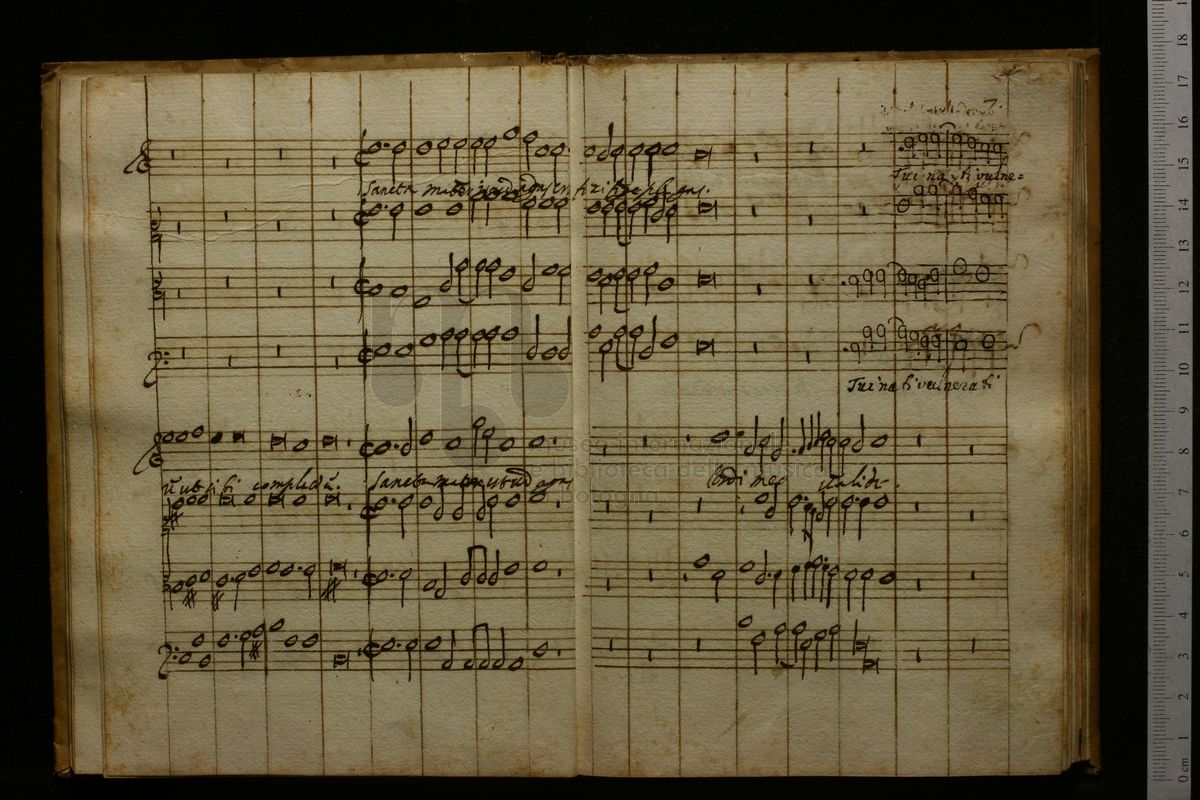 7
Sancta mater istud agas crucifixi fige plagas.
Tui na=ti vulne=
Tui nati vulnerati
ũ ut sibi complaceã. Sancta mater istud agas
Cordi meo valide.
museo internazionale
e biblioteca della musica
bologna
0 cm 1 2 3 4 5 6 7 8 9 10 11 12 13 14 15 16 17 18